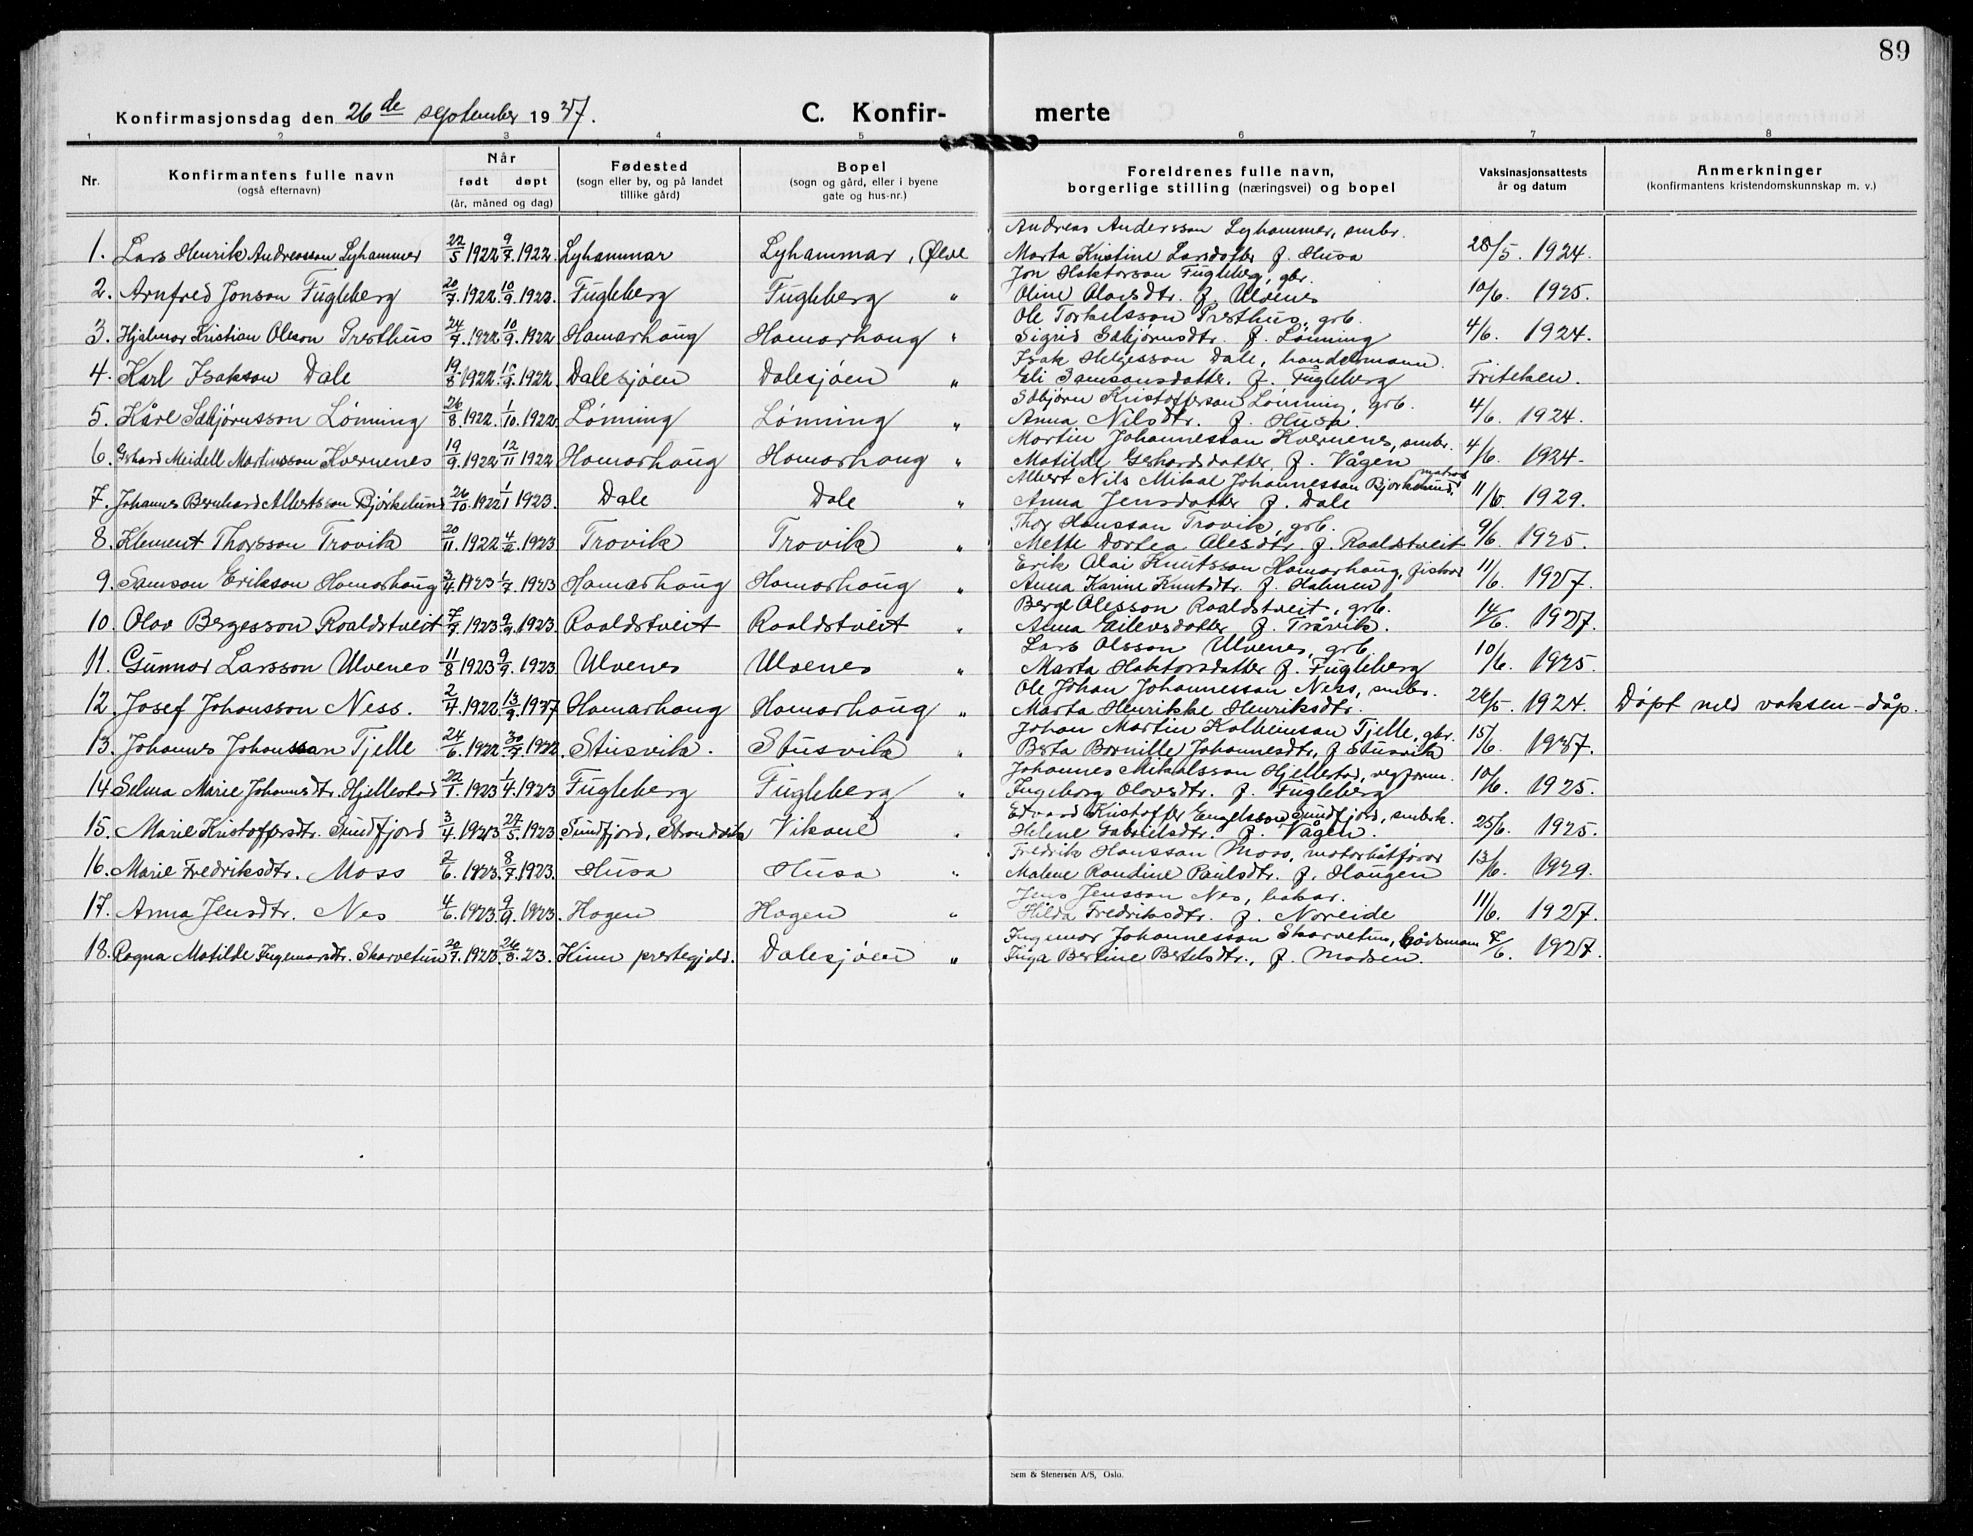 89
Konfirmasjonsdag den 26de september 1937. C. Konfirmerte
1 2 3 4 5 6 7 8
Nr. Konfirmantens fulle navn (også efternavn) Når født døpt (år, måned og dag) Fødested (sogn eller by, og på landet tillike gård) Bopel (sogn og gård, eller i byene gate og hus-nr.) Foreldrenes fulle navn, borgerlige stilling (næringsvei) og bopel Vaksinasjonsattests år og datum Anmerkninger (konfirmantens kristendomskunnskap m. v.)
Andreas Andersson Lyhammer, smbr.
1. Lars Henrik Andreasson Lyhammer 22/5 1922 9/7. 1922. Lyhammar Lyhammar, Ølve Marta Kristine Larsdatter f. Husa 28/5. 1924.
Jon Haktorson Fugleberg, gbr.
2. Arnfred Jonson Fugleberg 20/7. 1922 10/9. 1922. Fugleberg Fugleberg " Oline Olavsdtr. f. Ulvenes 10/6. 1925.
Ole Torkelsson Presthus, grb.
3. Hjalmar Kristian Oleson Presthus 24/7. 1922 10/9. 1922 Hamarhaug Hamarhaug " Sigrid Sæbjørnsdtr. f. Lønning 4/6. 1924.
Isak Helgesson Dale, handelsmann.
4. Karl Isakson Dale 19/8. 1922. 10/9. 1922. Dalesjøen Dalesjøen " Eli Samsonsdatter. f. Fugleberg Fritatt
Sæbjørn Kristofferson Lønning, grb.
5. Kåre Sæbjørnsson Lønning 26/8. 1922. 1/10. 1922. Lønning Lønning " Anna Nilsdtr. f. Husa. 4/6. 1924.
Martin Johannesson Kvernenes, smbr.
6. Gerhard Meidell Martinsson Kvernenes 19/9. 1922 12/11 1922 Hamarhaug Hamarhaug " Matilde Gerhardsdatter, f. Vågen 4/6. 1924.
Albert Nils Mikal Johannesson Bjørkelund. matros
7. Johannes Bernhard Albertsson Bjørkelund 26/10. 1922 1/1 1923. Dale Dale " Anna Jensdatter f. Dale 11/6. 1929.
Thor Hansson Trovik, grb.
8. Klement Thorsson Trovik 20/11. 1922 4/2. 1923 Trovik Trovik " Mette Dortea Olesdtr. f. Roaldstveit 9/6. 1925.
Erik Olai Knutsson Hamarhaug, fisker
9. Samson Erikson Hamarhaug 3/4. 1923 1/7. 1923 Hamarhaug Hamarhaug " Anna Karine Knutsdtr. f. 11/6. 1927.
Berge Olesson Roaldstveit, grb.
10. Olav Bergesson Roaldstveit 7/7. 1923. 9/9. 1923. Roaldstveit Roaldstveit " Anna Eilevsdatter f. Tråvik. 14/6. 1927.
Lars Olsson Ulvenes, grb.
11. Gunnar Larsson Ulvenes 11/8 1923 9/9. 1923 Ulvenes Ulvenes " Marta Haktorsdatter f. Fugleberg 10/6. 1925.
Ole Johan Johannesson Ness, smbr.
12. Josef Johansson Ness. 2/7. 1922. 13/9. 1937 Hamarhaug Hamarhaug " Marta Henrikke Henriksdtr. 24/5. 1924. Døpt med voksen-dåp.
Johan Martin Kolbeinson Tjelle, gbr.
13. Johannes Johansson Tjelle 24/6. 1922. 30/7. 1922. Stusvik. Stusvik " Berta Bornille Johannesdtr, f. Stusvik 15/6. 1937.
Johannes Mikalsson Hjellestad, vegform.
14. Selma Marie Johannesdtr. Hjellestad 22/1. 1923 1/4. 1923 Fugleberg Fugleberg " Ingeborg Olavsdtr. f. Fugleberg 10/6. 1925.
Edvard Kristoffer Engelsson Sundfjord, smbrk.
15. Marie Kristoffersdtr. Sundfjord 3/4. 1923 27/5. 1923 Sundfjord, Strandvik Vikane " Helene Gabrielsdtr. f. Vågen. 25/6. 1925.
Fredrik Hansson Moss, motorbåtfører
16. Marie Fredriksdtr. Moss 2/6. 1923. 8/7. 1923. Husa Husa " Malene Randine Paulsdtr. f. Haugen 13/6. 1929.
Jens Jensson Nes, bakar.
17. Anna Jensdtr. Nes 4/6. 1923. 9/9. 1923. Hagen Hagen " Hilda Fredriksdtr. f. Noreide 11/6. 1927.
Ingemar Johannesson Skorvetun, Gårdsmann
18. Ragna Matilde Ingemarsdtr. Skarvetun 20/7. 1923. 26/8. 23. Kinn prestegjeld. Dalesjøen " Inga Bertine Bertelsdtr., f. Madsen. 7/6. 1927.
Sem & Stenersen A/S, Oslo.